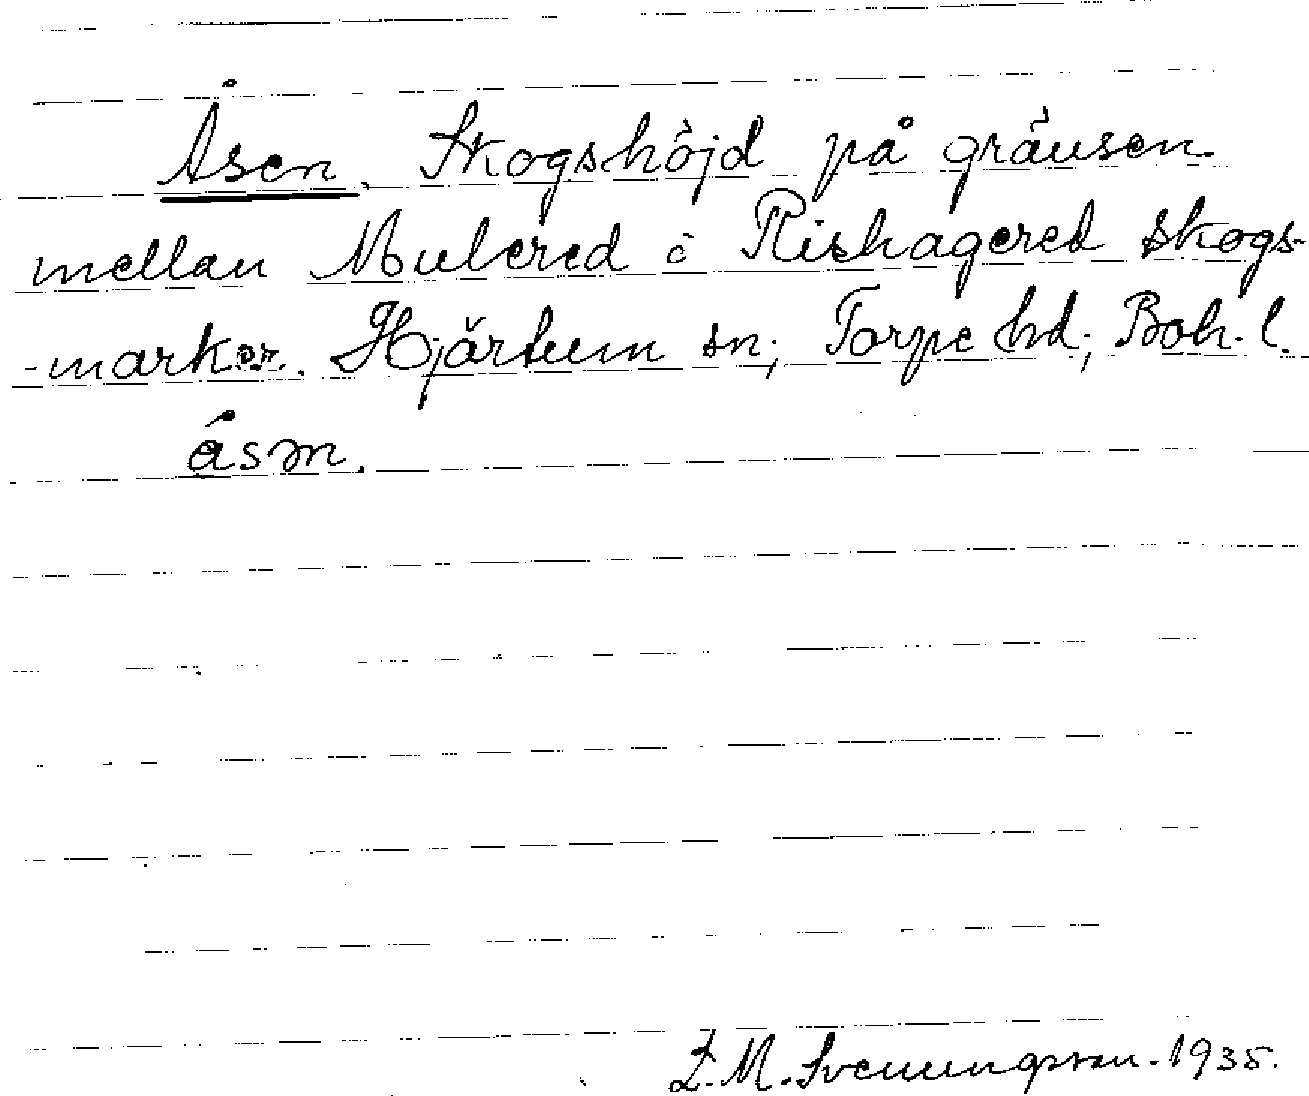 Åsen. Skogshöjd på gränsen
mellan Mulered å Rishagered skogs-
-marker. Hjärtum sn; Torpe hd; Boh. l.
åsm.
Z. M. Svenungsson. 1935.